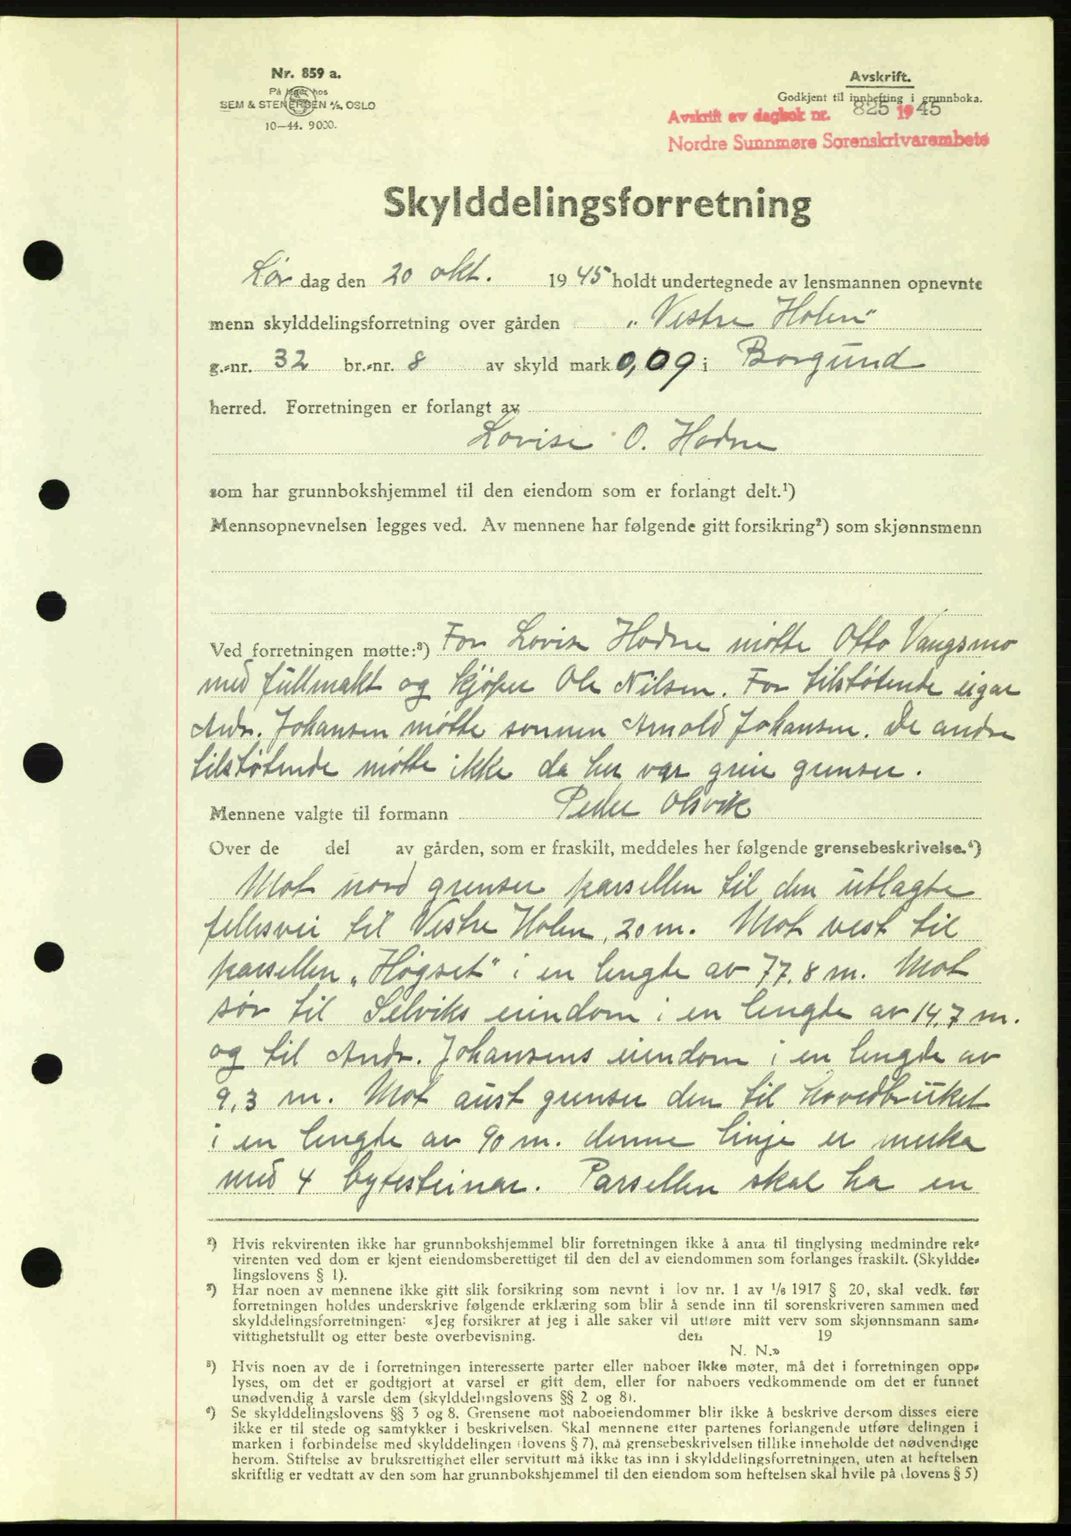 Nr. 859 a.
På lager hos
SEM & STENERSEN A/S, OSLO
10-44. 9000.
Avskrift.
Godkjent til innhefting i grunnboka.
Avskrift av dagbok nr. 825 1945
Nordre Sunnmøre Sorenskrivarembete
Skylddelingsforretning
Lør dag den 20 okt. 1945 holdt undertegnede av lensmannen opnevnte
menn skylddelingsforretning over gården "Vestre Holen"
g.-nr. 32 br.-nr. 8 av skyld mark 0,09 i Borgund
herred. Forretningen er forlangt av
Lovise O. Hodne
som har grunnbokshjemmel til den eiendom som er forlangt delt.¹)
Mennsopnevnelsen legges ved. Av mennene har følgende gitt forsikring²) som skjønnsmenn
Ved forretningen møtte:³) For Lovise Hodne møtte Otto Vangsmo
med fullmakt og kjøper Ole Nilsen. For tilstøtende eigar
Andr. Johansen møtte sønnen Arnold Johansen. De andre
tilstøtende møtte ikke da her var greie grenser.
Mennene valgte til formann Peder Olsvik
Over de del av gården, som er fraskilt, meddeles her følgende grensebeskrivelse.⁴)
Mot nord grenser parsellen til den utlagte
fellesvei til Vestre Holen, 20 m. Mot vest til
parsellen "Høgset" i en lengde av 77.8 m. Mot
sør til Selviks eiendom i en lengde av 14,7 m.
og til Andr. Johansens eiendom i en lengde av
9,3 m. Mot aust grenser den til hovedbruket
i en lengde av 90 m. denne linje er merka
med 4 bytesteinar. Parsellen skal ha en
²) Hvis rekvirenten ikke har grunnbokshjemmel blir forretningen ikke å anta til tinglysing medmindre rek-
virenten ved dom er kjent eiendomsberettiget til den del av eiendommen som forlanges fraskilt. (Skyldde-
lingslovens § 1).
²) Har noen av mennene ikke gitt slik forsikring som nevnt i lov nr. 1 av 1/6 1917 § 20, skal vedk. før
forretningen holdes underskrive følgende erklæring som blir å sende inn til sorenskriveren sammen med
skylddelingsforretningen: «Jeg forsikrer at jeg i alle saker vil utføre mitt verv som skjønnsmann sam-
vittighetsfullt og etter beste overbevisning. den 19
N. N.»
³) Hvis noen av de i forretningen interesserte parter eller naboer ikke møter, må det i forretningen opp-
lyses, om det er godtgjort at varsel er gitt dem, eller for naboers vedkommende om det er funnet
unødvendig å varsle dem (skylddelingslovens §§ 2 og 8).
⁴) Se skylddelingslovens §§ 3 og 8. Grensene mot naboeiendommer blir ikke å beskrive dersom disses eiere
ikke er til stede og samtykker i beskrivelsen. Skal mennene etter partenes forlangende utføre delingen i
marken i forbindelse med skylddelingen (lovens § 7), må grensebeskrivelsen tillike inneholde det nødvendige
herom. Stiftelse av bruksrettighet eller servitutt må ikke tas inn i skylddelingsforretningen, uten at heftelsen
skriftlig er vedtatt av den som har grunnbokshjemmel til den eiendom som heftelsen skal hvile på (lovens § 5)